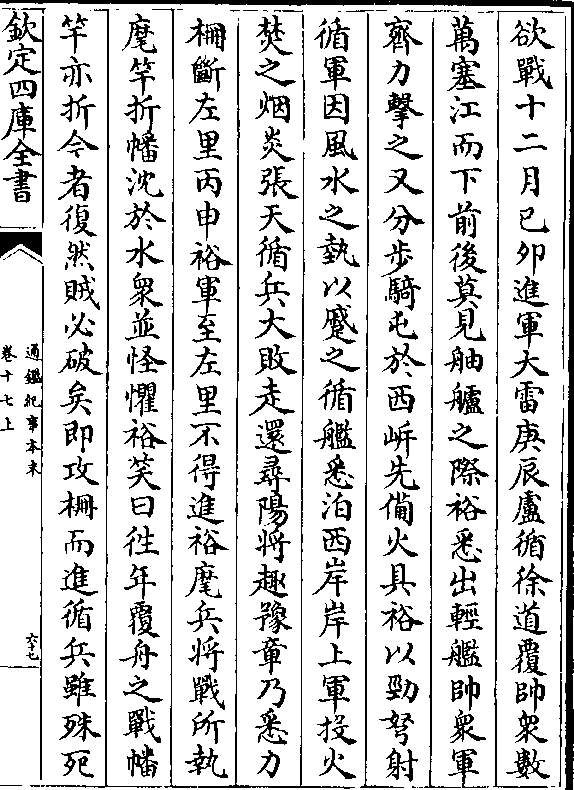 欲戰十二月已卯進軍大雷庚辰盧循徐道覆帥衆數
萬塞江而下前後莫見舳艫之際裕悉出輕艦帥衆軍
齊力擊之又分步騎屯於西岍先備火具裕以勁弩射
循軍因風水之埶以蹙之循艦悉泊西岸岸上軍投火
焚之烟炎張天循兵大敗走還尋陽將趣豫章乃悉力
柵斷左里丙申裕軍至左里不得進裕麾兵將戰所執
麾竿折幡沈於水衆並怪懼裕笑曰徃年覆舟之戰幡
竿亦折今者復然賊必破矣即攻柵而進循兵雖殊死
欽定四庫全書
通鑑紀事本末
卷十七上
六十七